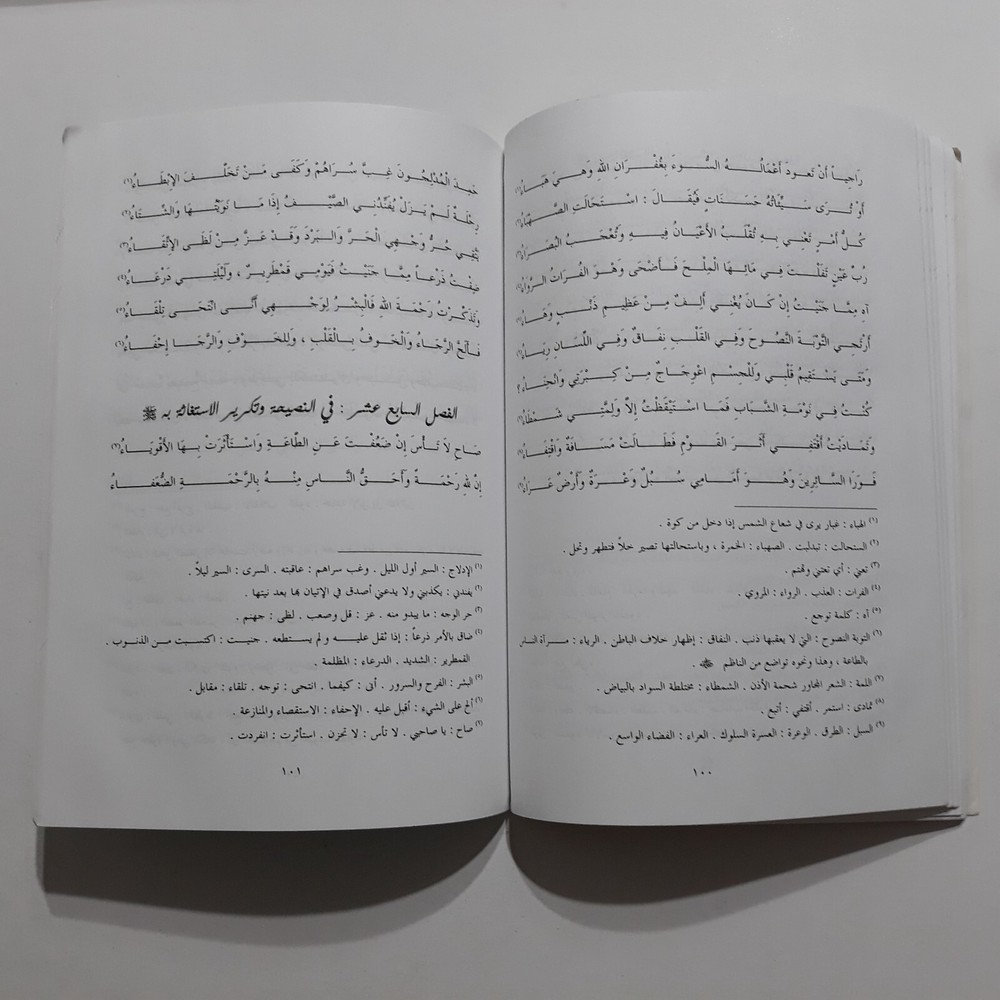 رَاجِياً أَنْ تَعودَ أَعْمَالُـهُ السُّوءَ بِغُفْرَانِ اللهِ وَهيَ هَبَاءُ(١)
أَوْ تُرَى سَيِّئَاتُهُ حَسَنَاتٍ فَيُقَالَ : اسْتَحَالَتِ الصَّهْبَاءُ(٢)
كُلُّ أَمْرٍ تَعْنِي بِهِ تُقْلَبُ الأَعْيَانُ فِيهِ وَتُعْجَبُ البُصَرَاءُ(٣)
رُبَّ عَيْنٍ تَفَلْتَ فِي مَائِهَا المِلْحِ فَأَضْحَى وَهْوَ الفُرَاتُ الرَّوَاءُ(٤)
آهِ مِمَّا جَنَيْتُ إِنْ كَانَ يُغْنِي أَلِفٌ مِنْ عَظِيمِ ذَنْبٍ وَهَاءُ(٥)
أَرْتَجِي التَّوْبَةَ النَّصُوحَ وَفِي القَلْبِ نِفَاقٌ وَفِي اللِّسَانِ رِيَاءُ(٦)
وَمَتَى يَسْتَقِيمُ قَلْبِي وَلِلْجِسْمِ اعْوِجَاجٌ مِنْ كِبْرَتِي وَانْحِنَاءُ؟
كُنْتُ فِي نَوْمَةِ الشَّبَابِ فَمَا اسْتَيْقَظْتُ إِلاَّ وَلِمَّتِي شَمْطَاءُ(٧)
وَتَمَادَيْتُ أَقْتَفِي أَثَرَ القَوْمِ فَطَالَتْ مَسَافَةٌ وَاقْتِفَاءُ(٨)
فَوَرَا السَّائِرِينَ وَهْوَ أَمَامِي سُبُلٌ وَعْرَةٌ وَأَرْضٌ عَرَاءُ(٩)
(١) الهباء : غبار يرى في شعاع الشمس إذا دخل من كوة .
(٢) استحالت : تبدلت . الصهباء : الخمرة ، وباستحالتها تصير خلاً فتطهر وتحل .
(٣) تعني : أي تعتني وتهتم .
(٤) الفرات : العذب . الرواء : المروي .
(٥) آه : كلمة توجع .
(٦) التوبة النصوح : التي لا يعقبها ذنب . النفاق : إظهار خلاف الباطن . الرياء : مرآة الناس
بالطاعة ، وهذا ونحوه تواضع من الناظم .
(٧) اللمة : الشعر المجاور شحمة الأذن . الشمطاء : مختلطة السواد بالبياض .
(٨) تمادى : استمر . أقتفي : أتبع .
(٩) السبل : الطرق . الوعرة : العسرة السلوك . العراء : الفضاء الواسع .
١٠٠
حَمِدَ الْمُدْلِجُونَ غِبَّ سُرَاهُمْ وَكَفَى مَنْ تَخَلَّفَ الإِبْطَاءُ(١)
رِحْلَةٌ لَمْ يَزَلْ يُفَنِّدُنِي الصَّيْفُ إِذَا مَا نَوَيْتُهَا وَالشِّتَاءُ(٢)
يَتَّقِي حُرُّ وَجْهِيَ الحَرَّ وَالبَرْدَ وَقَدْ عَزَّ مِنْ لَظَى الاِتِّقَاءُ(٣)
ضِقْتُ ذَرْعاً مِمَّا جَنَيْتُ فَيَوْمِي قَمْطَرِيرٌ ، وَلَيْلَتِي دَرْعَاءُ(٤)
وَتَذَكَّرْتُ رَحْمَةَ اللهِ فَالْبِشْرُ لِوَجْهِي أَنَّى انْتَحَى تِلْقَاءُ(٥)
فَأَلَحَّ الرَّجَاءُ وَالْخَوفُ بِالْقَلْبِ ، وَلِلخَوْفِ وَالرَّجَا إِحْفَاءُ(٦)
الفصل السابع عشر : في النصيحة وتكرير الاستغاثة به ﷺ
صَاحِ لاَ تَأْسَ إِنْ ضَعُفْتَ عَنِ الطَّاعَةِ وَاسْتَأْثَرَتْ بِهَا الأَقْوِيَاءُ(٧)
إِنَّ للهِ رَحْمَةً وَأَحَقُّ النَّاسِ مِنْهُ بِالرَّحْمَةِ الضُّعَفَاءُ
(١) الإدلاج : السير أول الليل . وغب سراهم : عاقبته . السرى : السير ليلاً .
(٢) يفندني : يكذبني ولا يدعني أصدق في الإتيان بها بعد نيتها .
(٣) حر الوجه : ما يبدو منه . عز : قل وصعب . لظى : جهنم .
(٤) ضاق بالأمر ذرعاً : إذا ثقل عليه ولم يستطعه . جنيت : اكتسبت من الذنوب .
القمطرير : الشديد . الدرعاء : المظلمة .
(٥) البشر : الفرح والسرور . أنى : كيفما . انتحى : توجه . تلقاء : مقابل .
(٦) ألح على الشيء : أقبل عليه . الإحفاء : الاستقصاء والمنازعة .
(٧) صاح : يا صاحبي . لا تأس : لا تحزن . استأثرت : انفردت .
١٠١